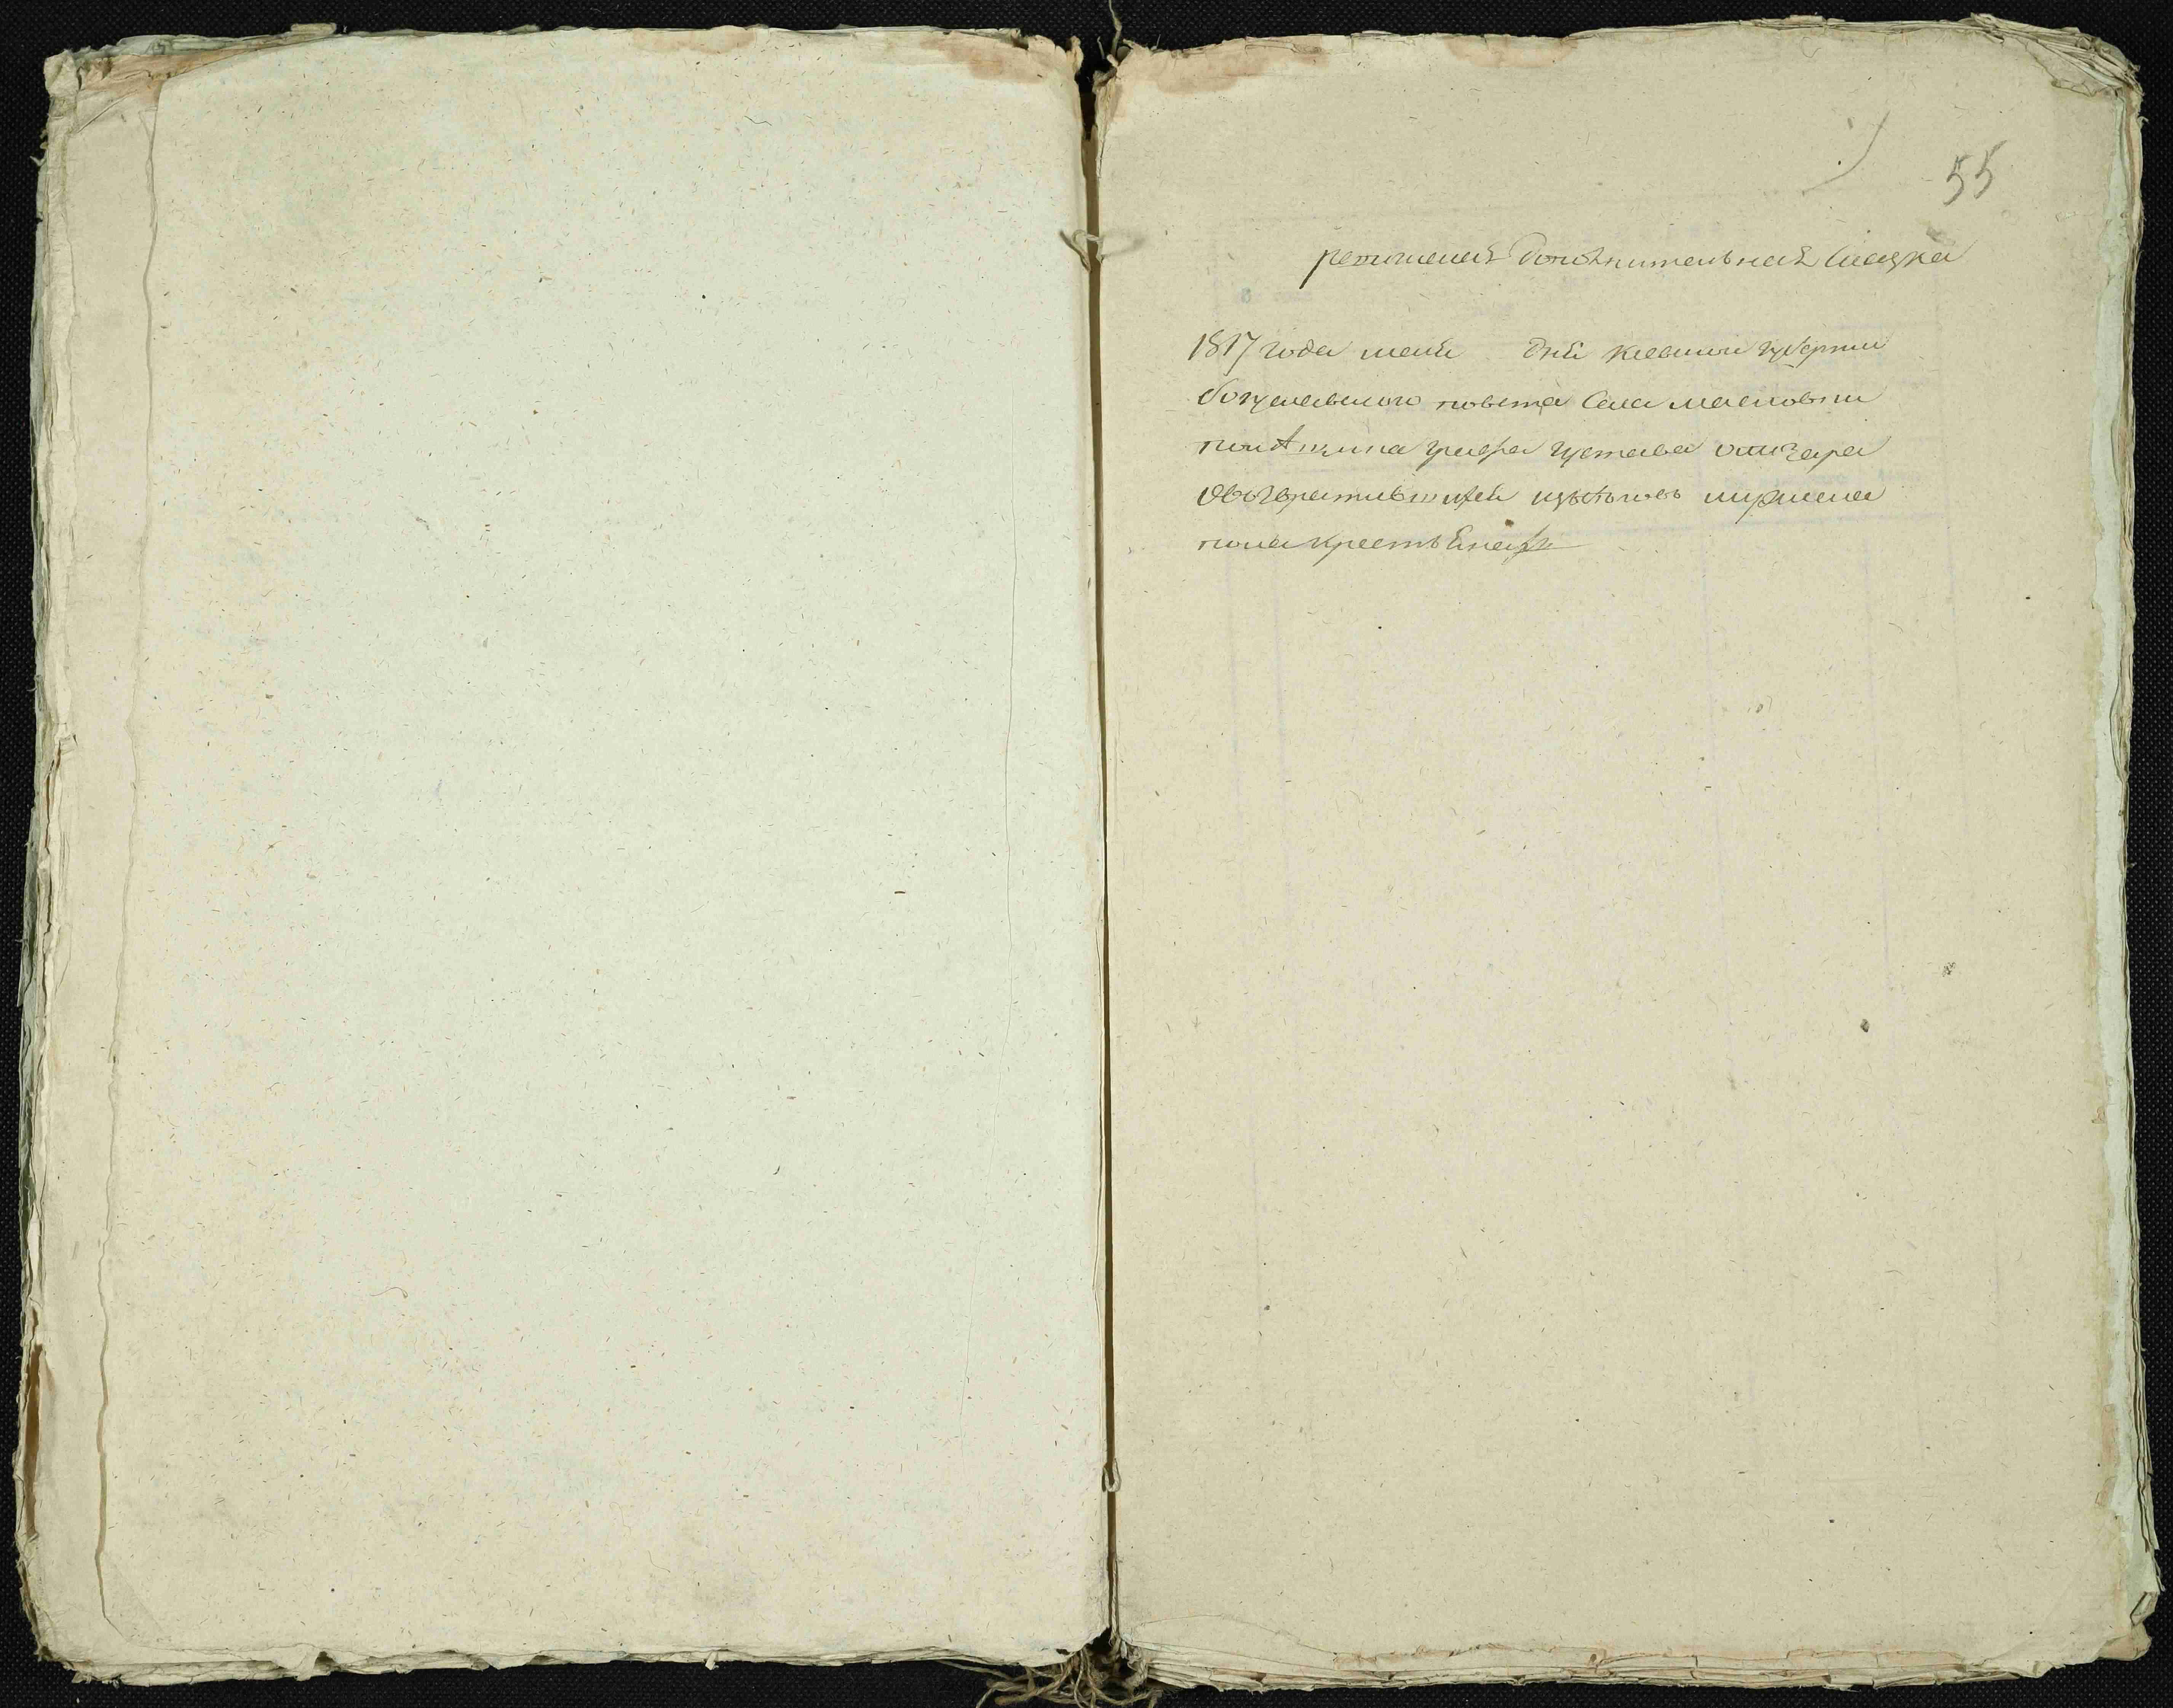 55
ревизская Дополнительная Сказка
1817 года маия дня киевской губернии
богуславского повета Села масловки
помѣщика графа густава олизара
овозвратившихся избѣгов мужеска
пола крестьянах